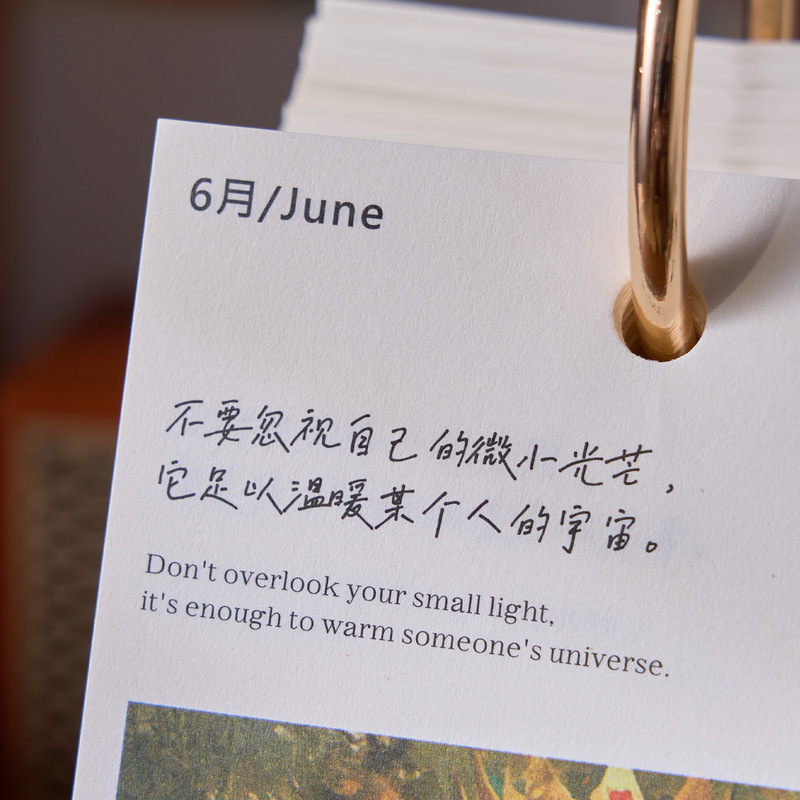 6月/June
不要忽视自己的微小光芒，
它足以温暖某个人的宇宙。
Don't overlook your small light,
it's enough to warm someone's universe.